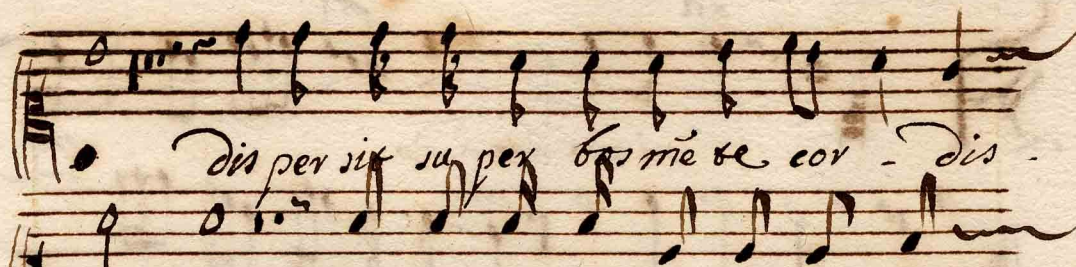 dis per sit su per bos mẽ te cor - dis -